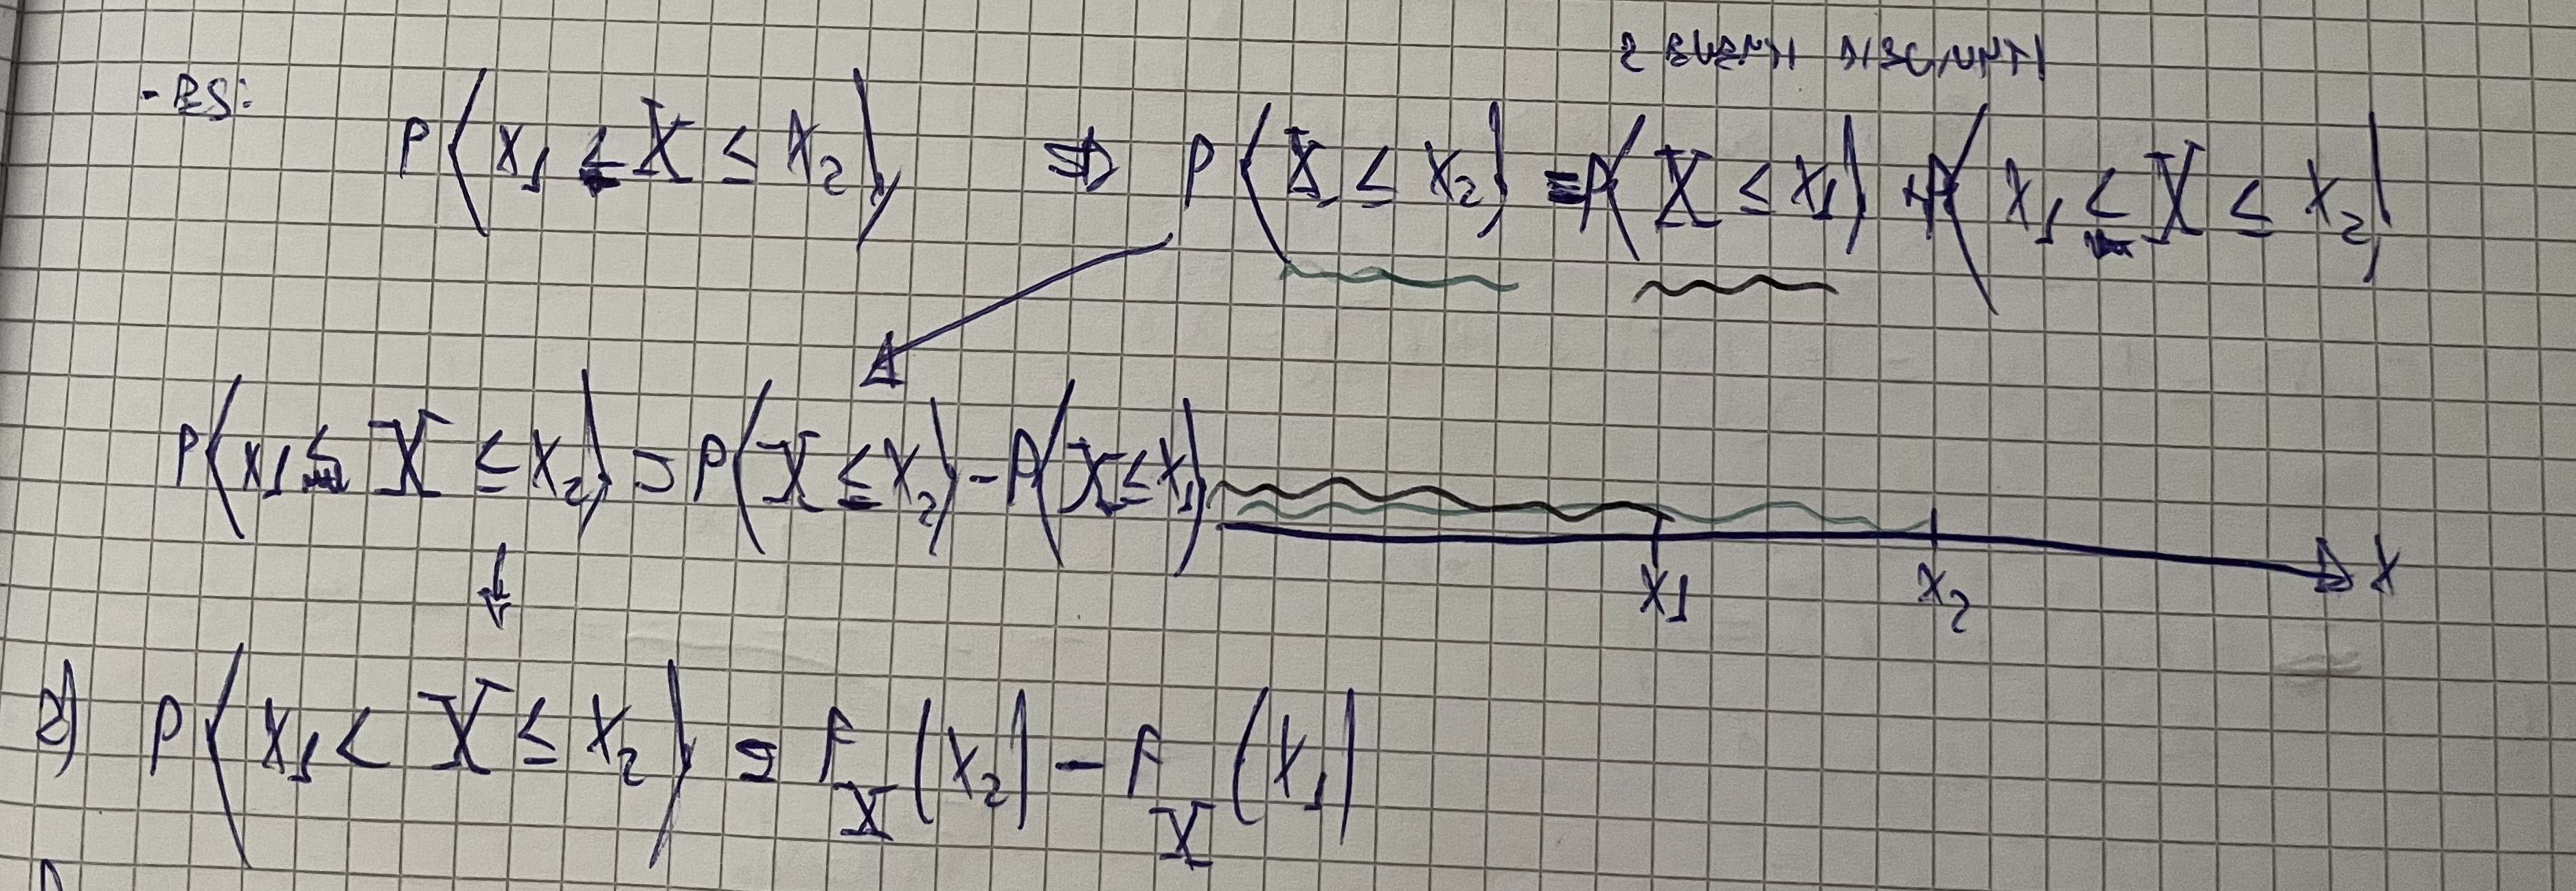 2 EVENTI DISGIUNTI
- ES: P(x₁ < X ≤ x₂) ⇒ P(X ≤ x₂) = P(X ≤ x₁) + P(x₁ < X ≤ x₂)
P(x₁ < X ≤ x₂) = P(X ≤ x₂) - P(X ≤ x₁)
x₁ x₂ x
2) P(x₁ < X ≤ x₂) = F_X(x₂) - F_X(x₁)